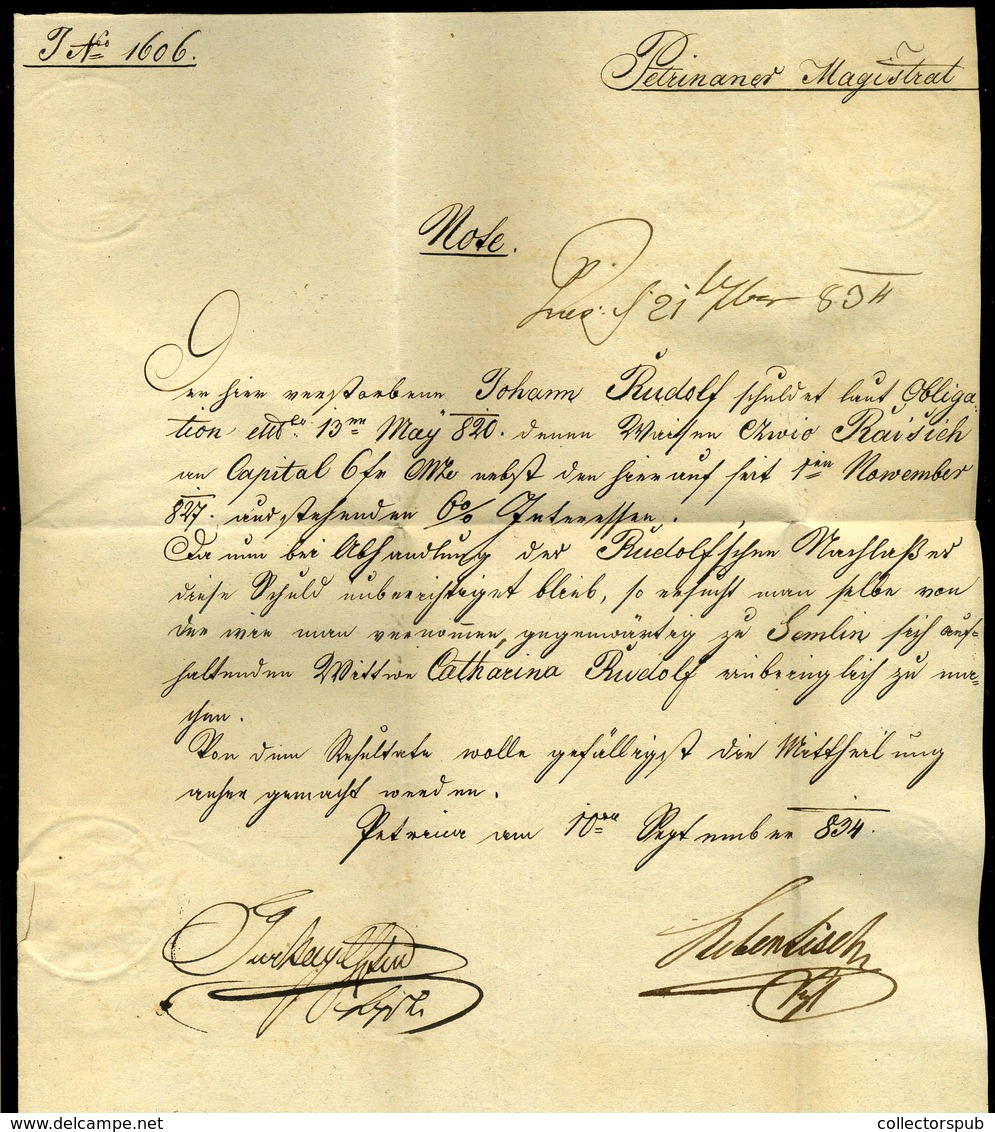 J No 1606.
Petrinaner Magistrat
Note.
21 7ber 834
Der hier verstorbene Johann Rudolf schuldet laut Obliga-
tion 13ten May 820. denen Waisen Raisich
an Capital 6 fr nebst den hierauf seit 1ten Nowember
827. ausstehenden 6% Interessen.
Da nun bei Abhandlung des Rudolf'schen Nachlaßes
diese Schuld unberichtiget blieb, so ersucht man selbe von
der wie man vernommen, gegenwärtig zu Semlin sich auf-
haltenden Wittwe Catharina Rudolf einbringlich zu ma-
chen.
Von dem Resultate wolle gefälligst die Mittheilung
anher gemacht werden.
Petrina am 10ten September 834.
Hebentisch
collectorspub